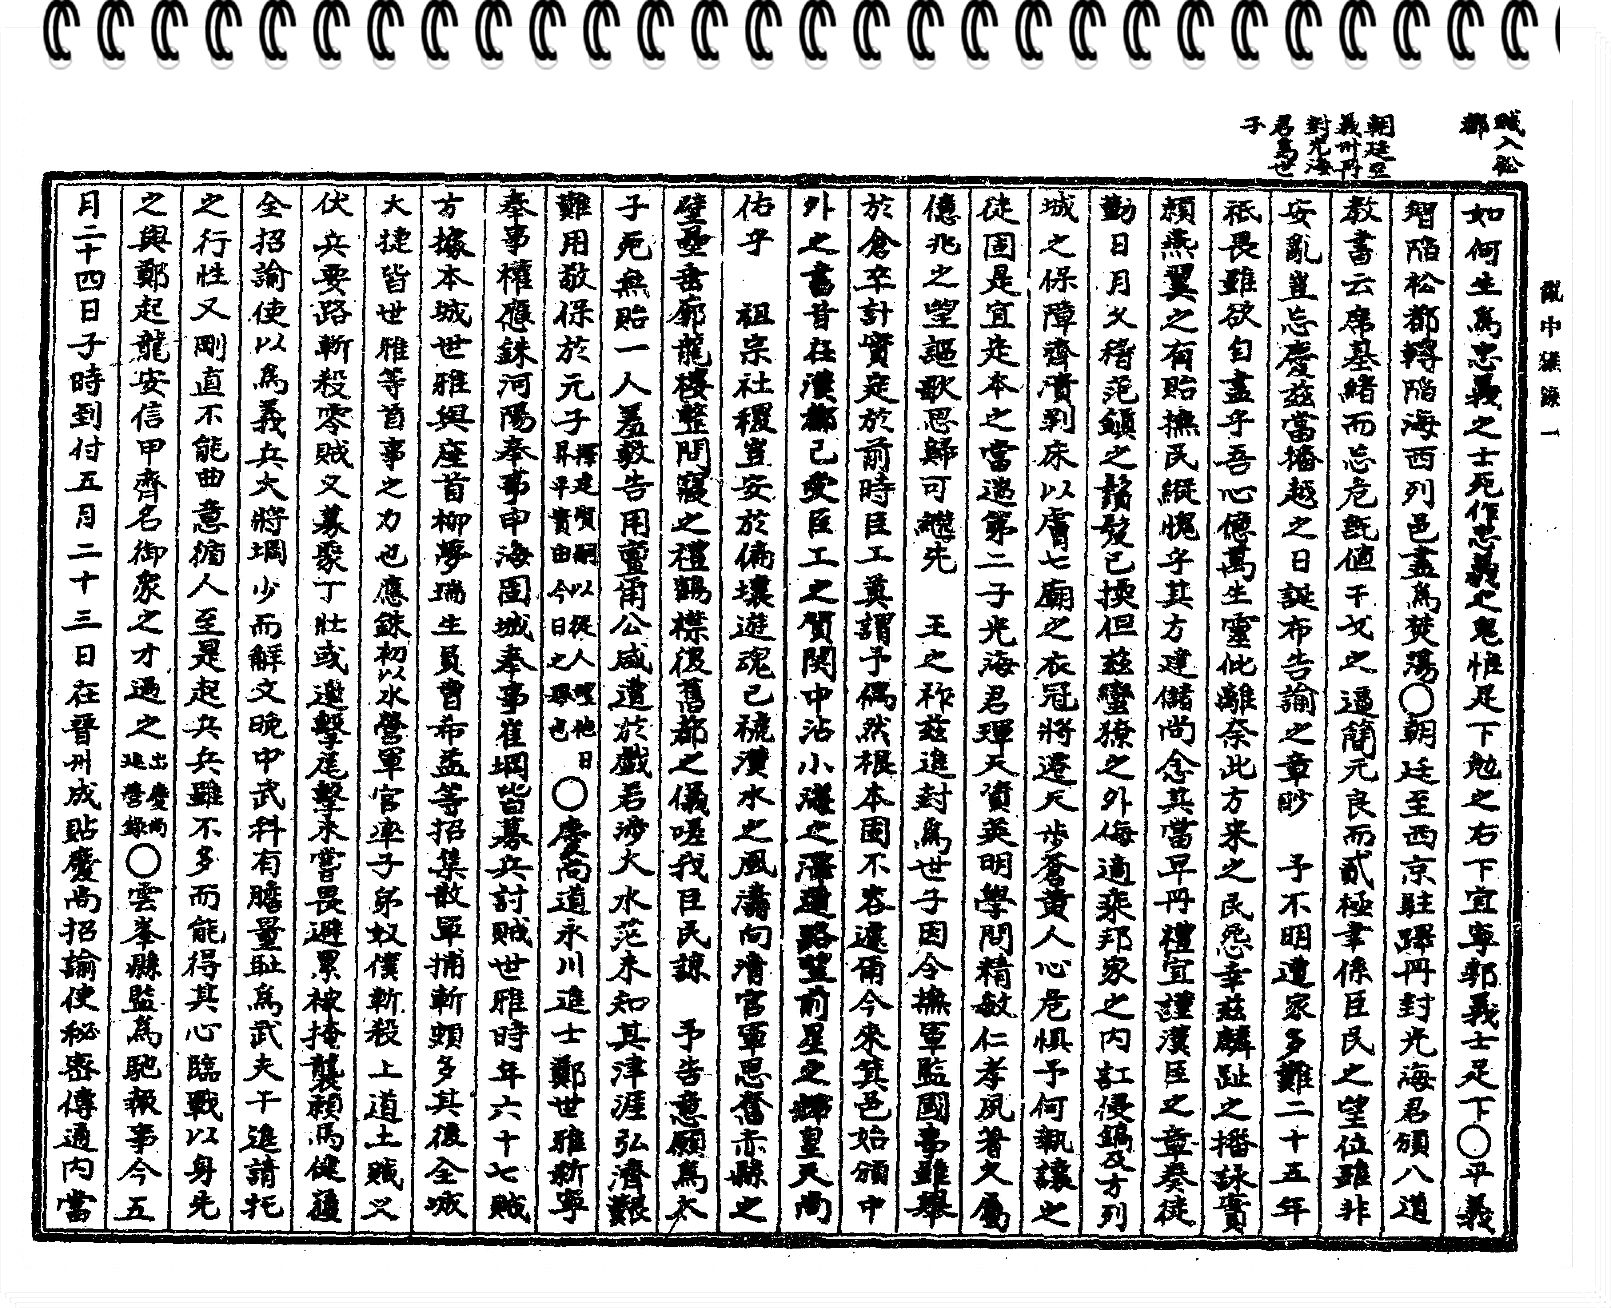 賊入松
都
朝廷至
義州再
封光海
君爲世
子
亂中雜錄一
如何生爲忠義之士死作忠義之鬼惟足下勉之右下宜寧郭義士足下〇平義
智陷松都轉陷海西列邑盡爲焚蕩〇朝廷至西京駐蹕再封光海君頒八道
教書云席基緖而忘危旣値干戈之逼簡元良而貳極聿係臣民之望位雖非
安亂豈忘慶玆當播越之日誕布告諭之章眇 予不明遭家多難二十五年
祇畏雖欲自盡乎吾心億萬生靈仳離奈此方來之民怨幸玆麟趾之播詠實
賴燕翼之有貽撫民縱愧乎其方建儲尚念其當早再禮宜謹漢臣之章奏徒
勤日月久稽范鎭之鬚髮已揆但玆蠻獠之外侮適乘邦家之內訌侵鎬及方列
城之保障齊潰剝床以膚七廟之衣冠將遷天步蒼黃人心危懼予何執讓之
徒固是宜定本之當遄第二子光海君琿天資英明學問精敏仁孝夙著久屬
億兆之望謳歌思歸可繼先 王之祚玆進封爲世子因令撫軍監國事雖擧
於倉卒計實定於前時臣工莫謂予偶然根本固不容遽爾今來箕邑始頒中
外之書昔在漢都已受臣工之賀關中沾小海之澤道路望前星之輝皇天尚
佑乎 祖宗社稷豈安於偏壤遊魂已褫漢水之風濤向潰官軍思奮赤縣之
壁壘垂廓龍樓整問寢之禮鶴禁復舊都之儀嗟我臣民諒 予告意願爲太
子死無貽一人羞敎告用亶爾公咸遺於戲若涉大水茫未知其津涯弘濟艱
難用敬保於元子擇建賢嗣以從人望他日昇平實由今日之擧也〇慶尚道永川進士鄭世雅新寧
奉事權應銖河陽奉事申海固城奉事崔堈皆募兵討賊世雅時年六十七賊
方據本城世雅與座首柳夢瑞生員曺希益等招集散軍捕斬頗多其後全城
大捷皆世雅等首事之力也應銖初以水營軍官率子弟奴僕斬殺上道土賊又
伏兵要路斬殺零賊又募聚丁壯或邀擊尾擊未嘗畏避累被掩襲賴馬健獲
全招諭使以爲義兵大將堈少而解文晩中武科有膽量恥爲武夫干進請托
之行性又剛直不能曲意徇人至是起兵兵雖不多而能得其心臨戰以身先
之與鄭起龍安信甲齊名御衆之才過之出慶尙巡營錄〇雲峯縣監爲馳報事今五
月二十四日子時到付五月二十三日在晉州成貼慶尚招諭使秘密傳通內當